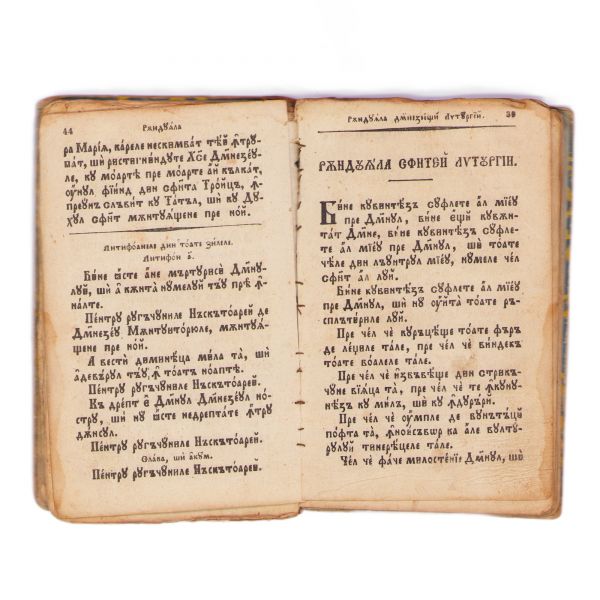 44
Рѫндуѧла
ра Марі́а, ка́реле нескимба́т те́й ꙟтру-
па́т, шѝ рꙋстигни́ндуте Хс҃е Дм҃незе́у-
ле, ку мо́арте пре мо́арте аѝ кълка́т,
у́нул фіи́нд дин сфи́нта Тро́йцъ, ꙟ-
преꙋнъ слъви́т ку Та́тъл, шѝ ку Ду́-
хул сфи́нт мѫнтуѧ́щене пре но́й.
Антифо́анеле дин то́ате зи́леле.
Антифо́н а҃.
Би́не ѧ́сте а́не мъртурисѝ Дм҃ну-
лу́й, шѝ а̀ кѫнта̀ нумелуй тъу пре́ ꙟ-
на́лте.
Пе́нтру ругъчу́ниле Нъскъто́арей де
Дм҃незе́у Мѫнтуито́рюле, мѫнтуѧ́-
щене пре но́й.
А вестѝ димине́ца ми́ла та̀, шѝ
а҆девъ́рул тъ́у, ꙟ то́атъ но́аптѣ.
Пе́нтру ругъчу́ниле Нъскъто́арей.
Къ дре́пт є҆ Дм҃нул Дм҃незе́ул но́-
стру, шѝ ну ѧ́сте недрепта́те ꙟтру
дѫ́нсул.
Пе́нтру ругъчу́ниле Нъскъто́арей.
Сла́ва, шѝ аку́м.
Пе́нтру ругъчу́ниле Нъскъто́арей.
Рѫндуѧла дм҃незеещій Лѵтургі́й.
39
РѪНДУѦЛА СФИ́НТЕЙ ЛѴТУРГІ́И.
Би́не кувинтѣ́зъ су́флете а́л мїе́у
пре Дм҃нул, би́не е҆щй кувѫн-
та́т Дм҃не, би́не кувинтѣ́зъ су́фле-
те а́л мїе́у пре Дм҃нул, шѝ то́ате
че́ле дин лъу́нтрул мїе́у, ну́меле че́л
сфи́нт а́л луй.
Би́не кувинтѣ́зъ су́флете а́л мїе́у
пре Дм҃нул, шѝ ну у҆ита̀ то́ате ръ-
сплъти́риле луй.
Пре че́л че̏ куръце́ще то́ате фъръ
де ле́џиле тале, пре че́л че̏ ви́ндекъ
то́ате бо́алеле тале.
Пре че́л че̏ избъвѣ́ще дин стрикъ-
чу́не вїа́ца та̀, пре че́л че̏ те ꙟкуну-
нѣ́зъ ку ми́лъ, шѝ ку ꙟдура́рй.
Пре че́л че̏ у҆́мпле де бунътъ́цй
по́фта та̀, ꙟноисъвѡ́р ка але ву́лту-
рулуй тинере́целе тале.
Че́л че̏ фа́че милосте́нїе Дм҃нул, шѝ